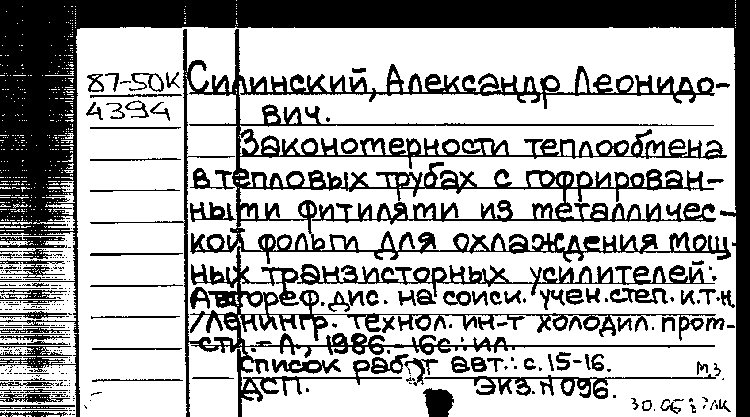 87-50К
4394
Силинский, Александр Леонидо-
вич.
Закономерности теплообмена
в тепловых трубах с гофрирован-
ными фитилями из металличес-
кой фольги для охлаждения мощ-
ных транзисторных усилителей:
Автореф. дис. на соиск. учен. степ. к.т.н.
/Ленингр. технол. ин-т холодил. пром-
сти. - Л., 1986. - 16с.: ил.
Список работ авт.: с. 15-16.
М.З.
ДСП. ЭКЗ. N 096.
30.06